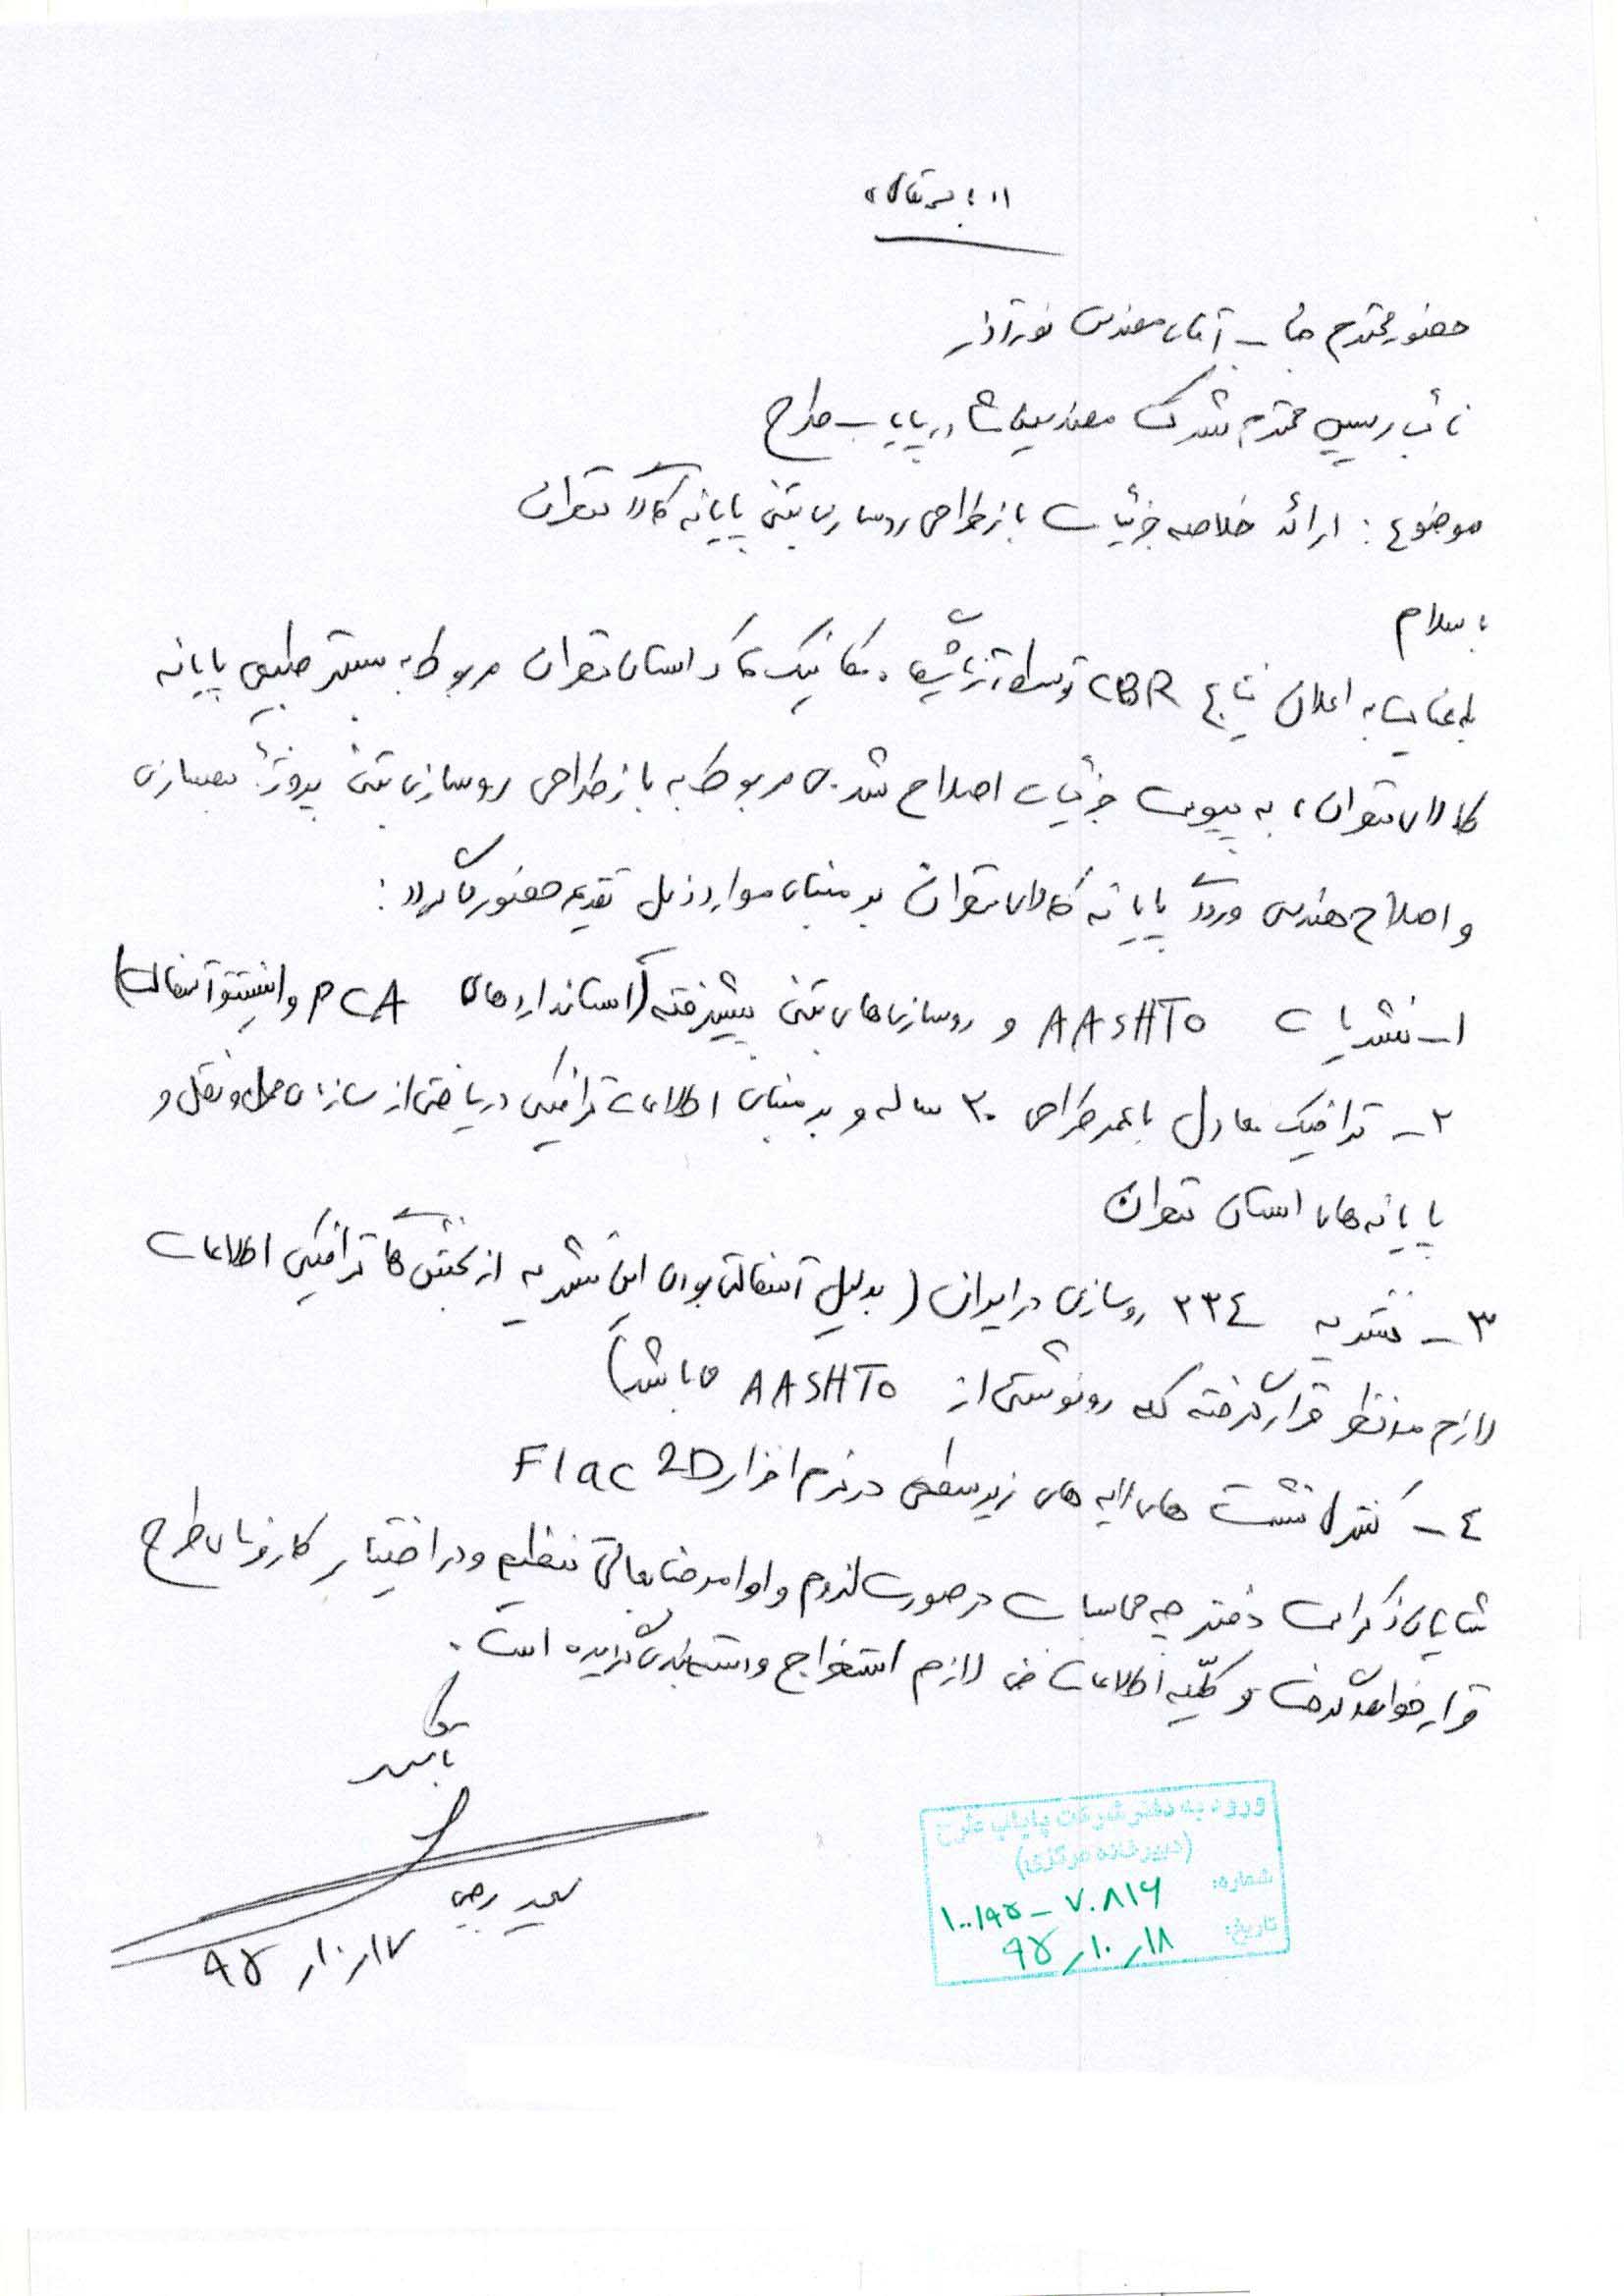 «بسمه تعالی»
حضور محترم جناب آقای مهندس
نائب رییس محترم شرکت مهندسین مشاور پایاب طرح
موضوع: ارائه خلاصه جزئیات بازطراحی روسازی بتنی پایانه کالا تهران
با سلام
با عنایت به اعلان نتایج CBR توسط آزمایشگاه مکانیک خاک استان تهران مربوط به بستر طبیعی پایانه
کالای تهران، به پیوست جزئیات اصلاح شده ی مربوط به بازطراحی روسازی بتنی پروژه بهسازی
و اصلاح هندسی ورودی پایانه کالای تهران بر مبنای موارد ذیل تقدیم حضور می گردد:
۱- نشریات AASHTO و روسازی های بتنی پیشرفته (استانداردهای PCA و انیستیتو آسفالت)
۲- ترافیک معادل با عمر طراحی ۲۰ ساله و بر مبنای اطلاعات ترافیکی دریافتی از سازمان حمل و نقل و
پایانه های استان تهران
۳- نشریه ۲۳٤ روسازی در ایران (بدلیل آسفالتی بودن این نشریه از بخش های ترافیکی اطلاعات
لازم مدنظر قرار گرفته که رونوشتی از AASHTO می باشد)
٤- کنترل نشست های لایه های زیرسطحی در نرم افزار Flac 2D
شایان ذکر است دفترچه محاسبات در صورت لزوم و اوامر جنابعالی تنظیم و در اختیار کارفرمای طرح
قرار خواهد گرفت و کلیه اطلاعات فنی لازم استخراج و دسته بندی گردیده است.
با تشکر
سعید رجبی
۹۵/۱۰/۱۷
ورود به دفتر شرکت پایاب طرح
(دبیرخانه مرکزی)
شماره: ۱۰۰/۹۵-۷۰۸۱۶
تاریخ: ۹۵/۱۰/۱۸